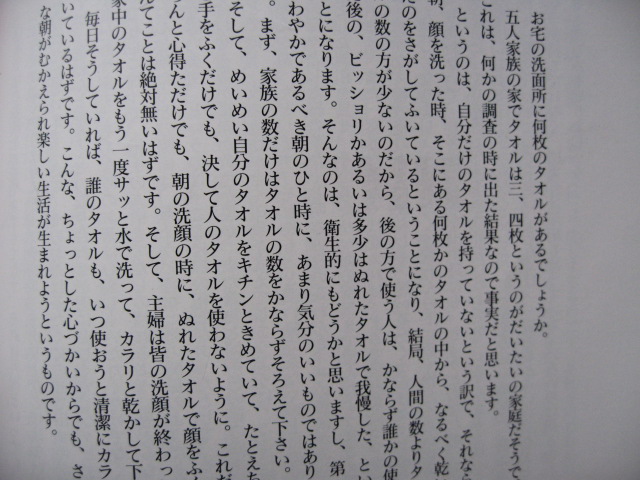 お宅の洗面所に何枚のタオルがあるでしょうか。
五人家族の家でタオルは三、四枚というのがだいたいの家庭だそうで
これは、何かの調査の時に出た結果なので事実だと思います。
というのは、自分だけのタオルを持っていないという訳で、それなら
朝、顔を洗った時、そこにある何枚かのタオルの中から、なるべく乾
たのをさがしてふいているということになり、結局、人間の数よりタ
の数の方が少ないのだから、後の方で使う人は、かならず誰かの使
後の、ビッショリかあるいは多少はぬれたタオルで我慢した、とい
とになります。そんなのは、衛生的にもどうかと思いますし、第
わやかであるべき朝のひと時に、あまり気分のいいものではあり
。まず、家族の数だけはタオルの数をかならずそろえて下さい。
そして、めいめい自分のタオルをキチンときめていて、たとえち
手をふくだけでも、決して人のタオルを使わないように。これだ
ちんと心得ただけでも、朝の洗顔の時に、ぬれたタオルで顔をふく
んてことは絶対無いはずです。そして、主婦は皆の洗顔が終わっ
家中のタオルをもう一度サッと水で洗って、カラリと乾かして下
毎日そうしていれば、誰のタオルも、いつ使おうと清潔にカラ
いているはずです。こんな、ちょっとした心づかいからでも、さ
な朝がむかえられ楽しい生活が生まれようというものです。